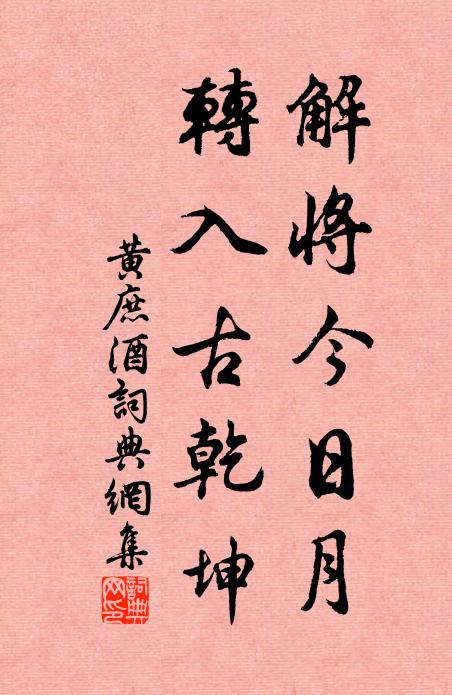 解將今日月
轉入古乾坤
黃庶酒詞典網集
詞典網印